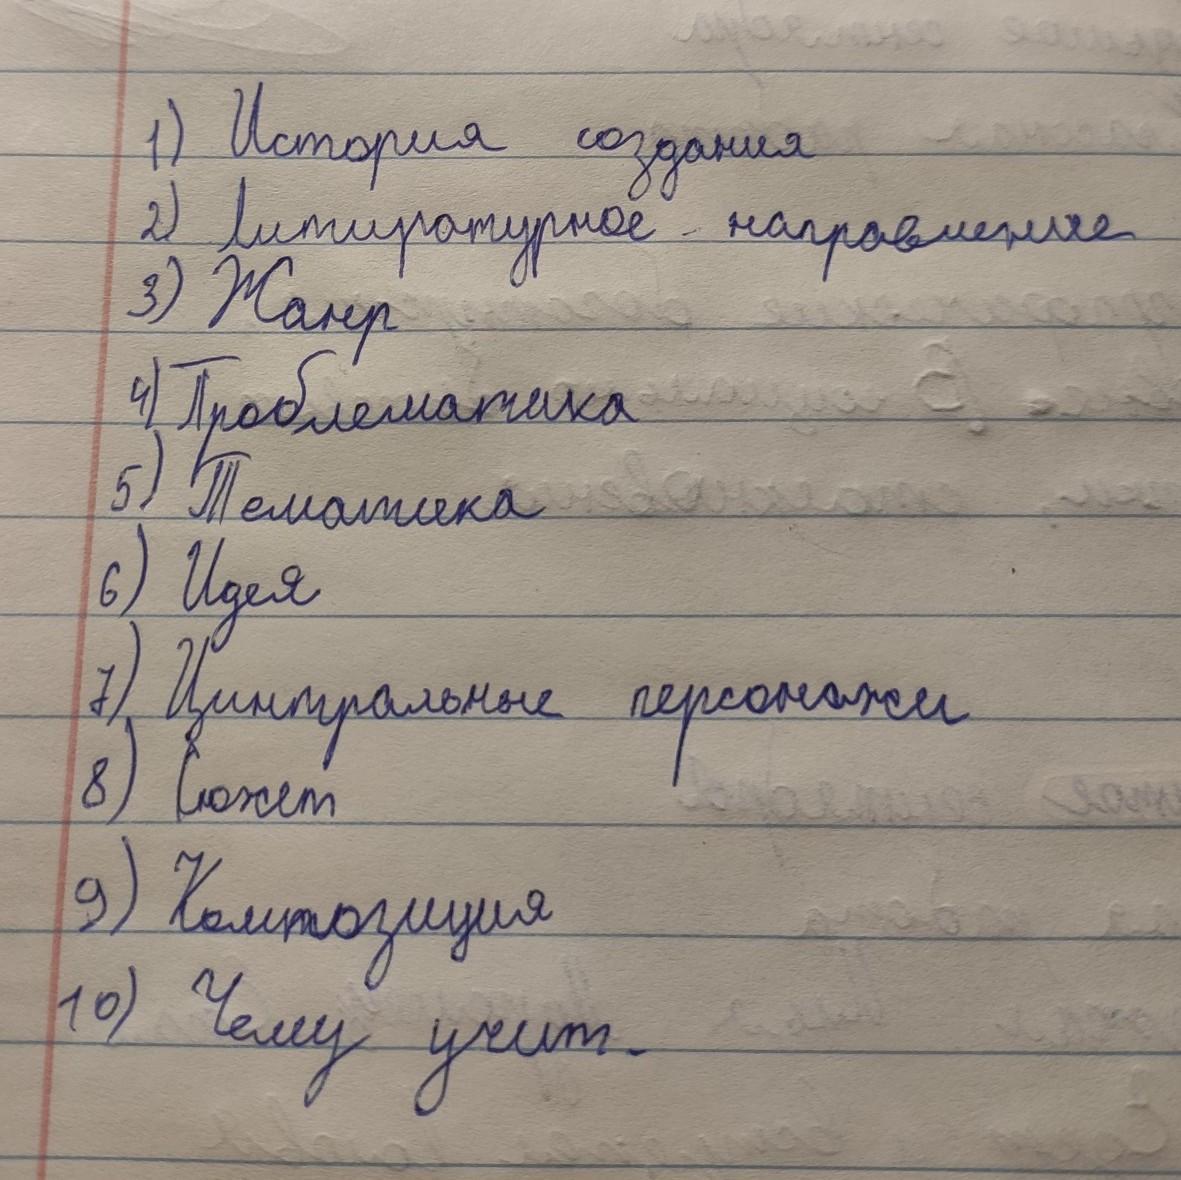 1) История создания
2) Литиратурное направление
3) Жанр
4) Проблематика
5) Тематика
6) Идея
7) Цинтральные персонажи
8) Сюжет
9) Композиция
10) Чему учит.